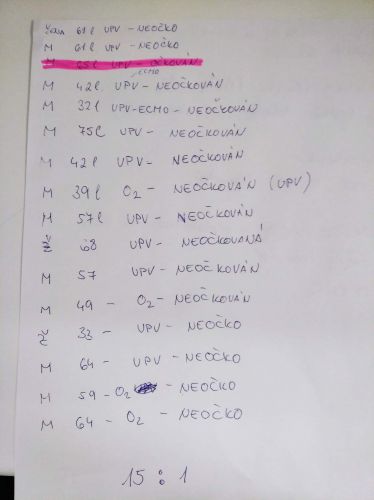 žena 61l UPV - NEOČKO
M 61l UPV - NEOČKO
M 65l UPV - OČKOVÁN
M 42l UPV - NEOČKOVÁN
ECMO
M 32l UPV-ECMO - NEOČKOVÁN
M 75l UPV - NEOČKOVÁN
M 42l UPV - NEOČKOVÁN
M 39l O2 - NEOČKOVÁN (UPV)
M 57l UPV - NEOČKOVÁN
Ž 68 UPV - NEOČKOVANÁ
M 57 UPV - NEOČKOVÁN
M 49 - O2 - NEOČKOVÁN
Ž 33 - UPV - NEOČKO
M 64 - UPV - NEOČKO
M 59 - O2 - NEOČKO
M 64 - O2 - NEOČKO
15 : 1